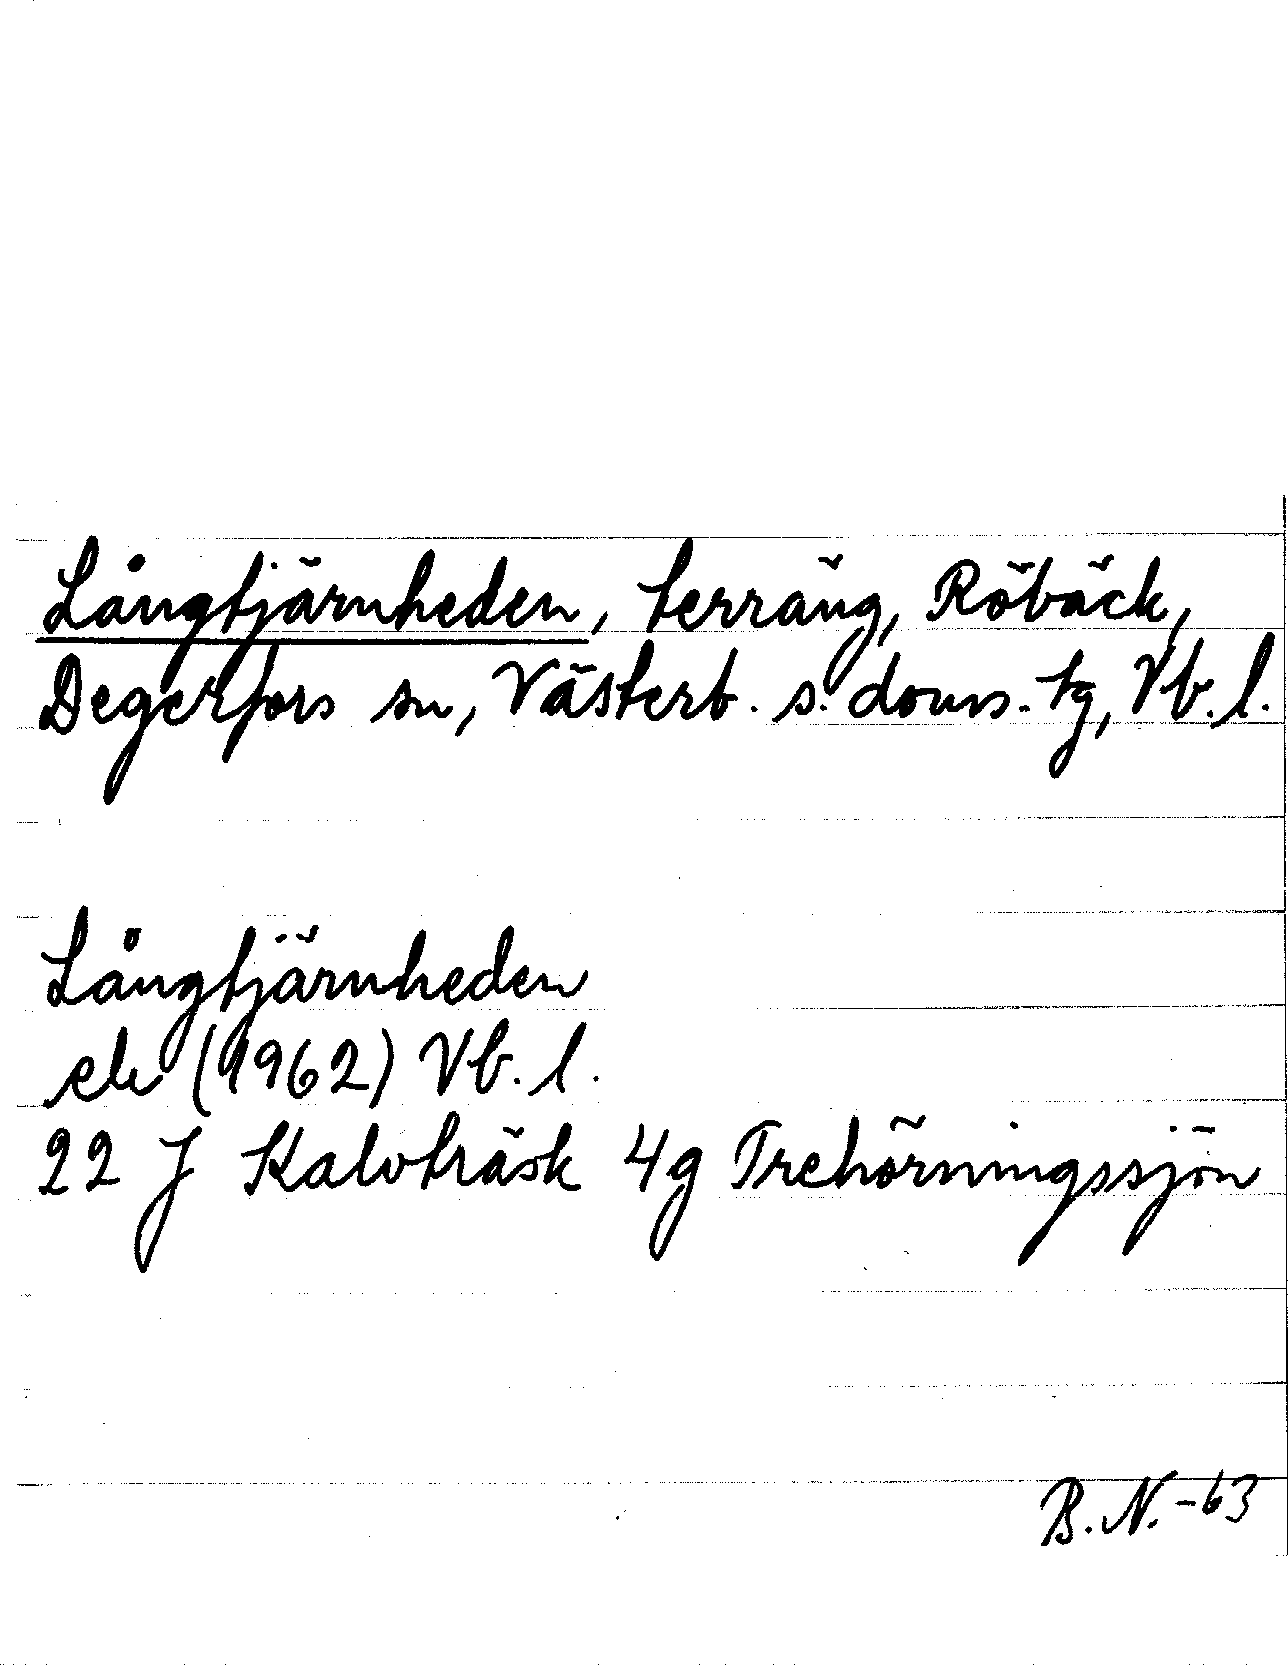 Långtjärnheden, terräng, Röbäck,
Degerfors sn, Västerb. s. doms. tg, Vb. l.
Långtjärnheden
ek (1962) Vb. l.
22 J Kalvträsk 4g Trehörningssjön
B. N. -63